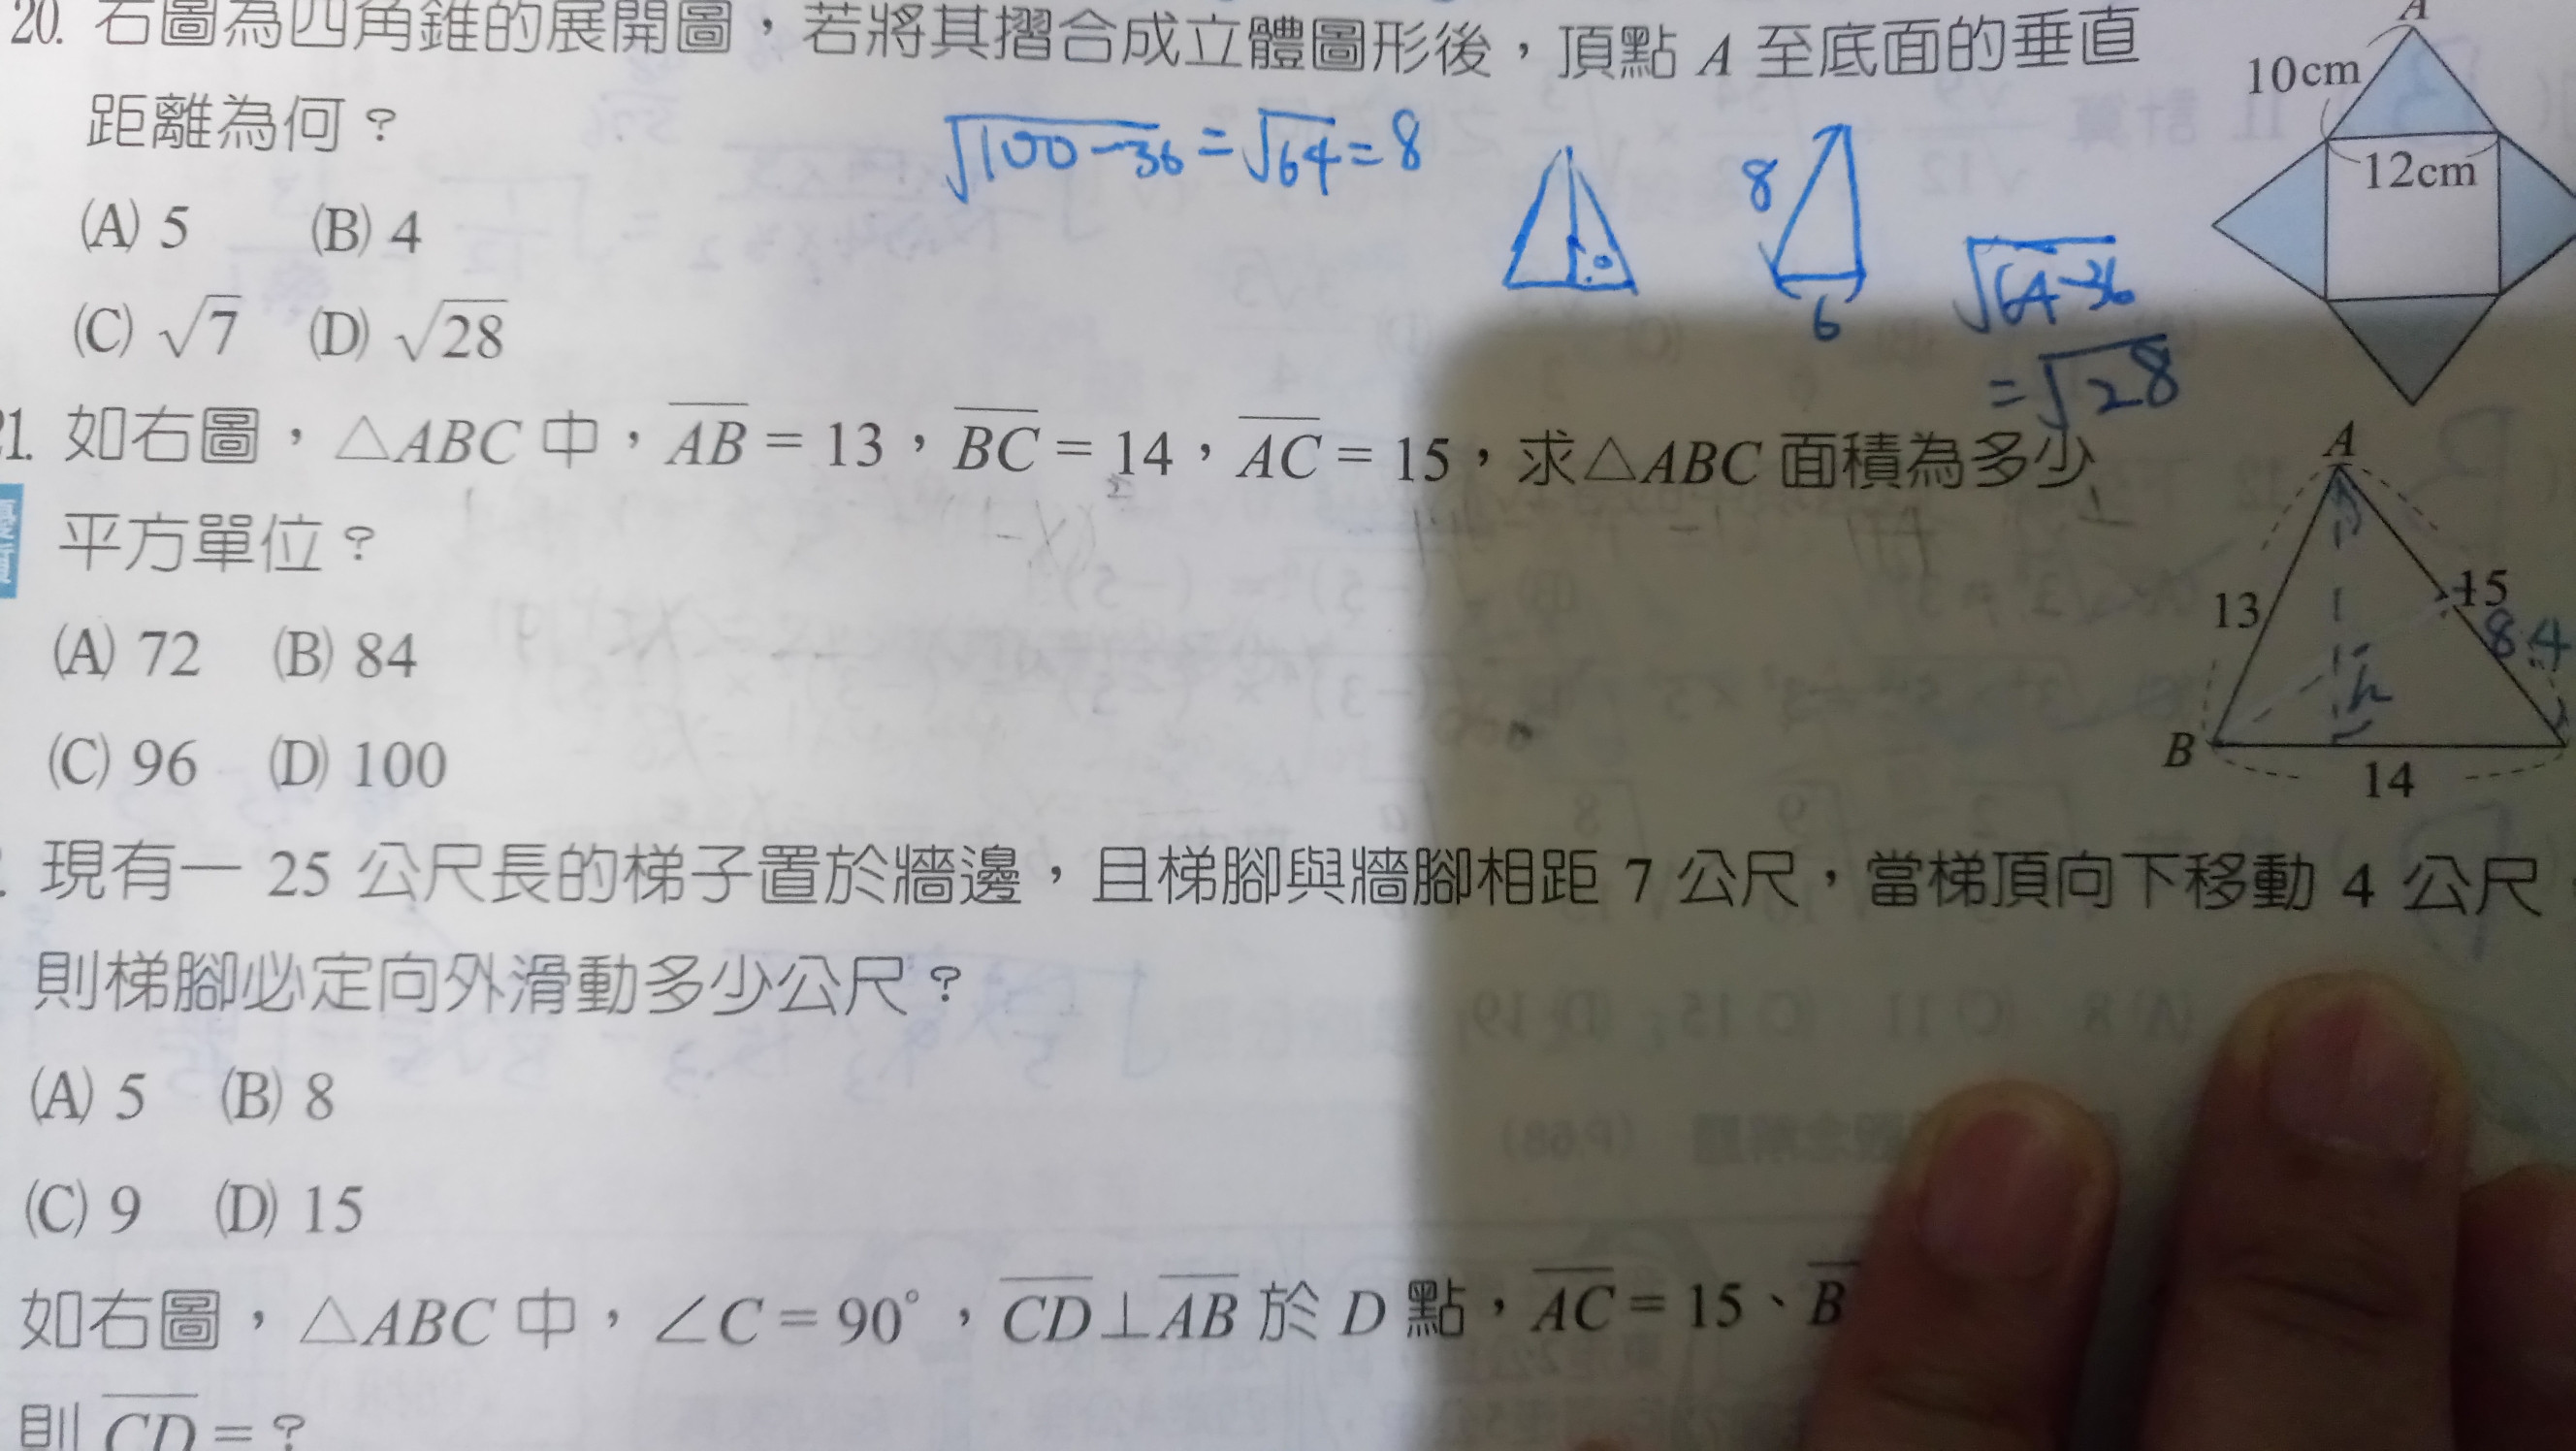 20. 右圖為四角錐的展開圖，若將其摺合成立體圖形後，頂點 A 至底面的垂直
距離為何？
(A) 5 (B) 4
(C) √7 (D) √28
√100-36 = √64 = 8
8
6
√64-36
= √28
A
10cm
12cm
1. 如右圖，△ABC 中，AB = 13，BC = 14，AC = 15，求△ABC 面積為多少
平方單位？
(A) 72 (B) 84
(C) 96 (D) 100
A
13
15
84
h
B
14
. 現有一 25 公尺長的梯子置於牆邊，且梯腳與牆腳相距 7 公尺，當梯頂向下移動 4 公尺
則梯腳必定向外滑動多少公尺？
(A) 5 (B) 8
(C) 9 (D) 15
如右圖，△ABC 中，∠C = 90°，CD⊥AB 於 D 點，AC = 15、B
則 CD = ?